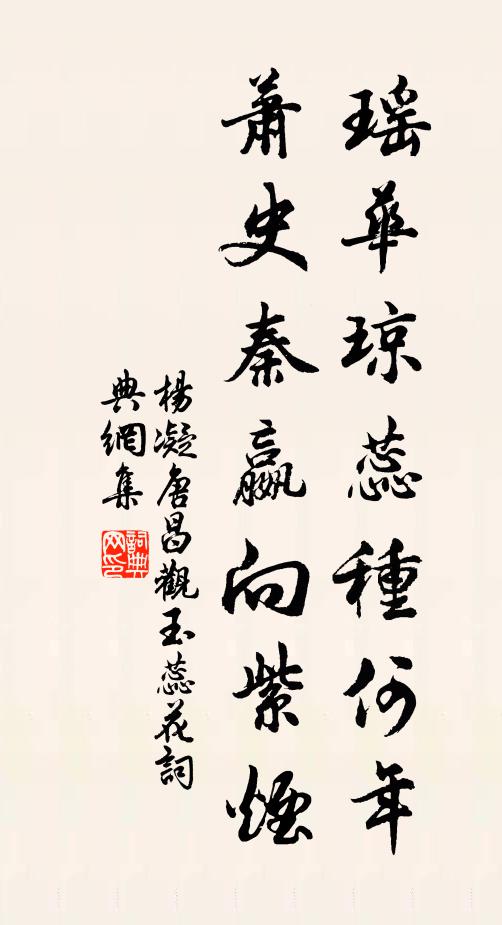 瑶華琼蕊種何年
蕭史秦嬴向紫煙
楊凝唐昌觀玉蕊花詞
典網集
詞典网印